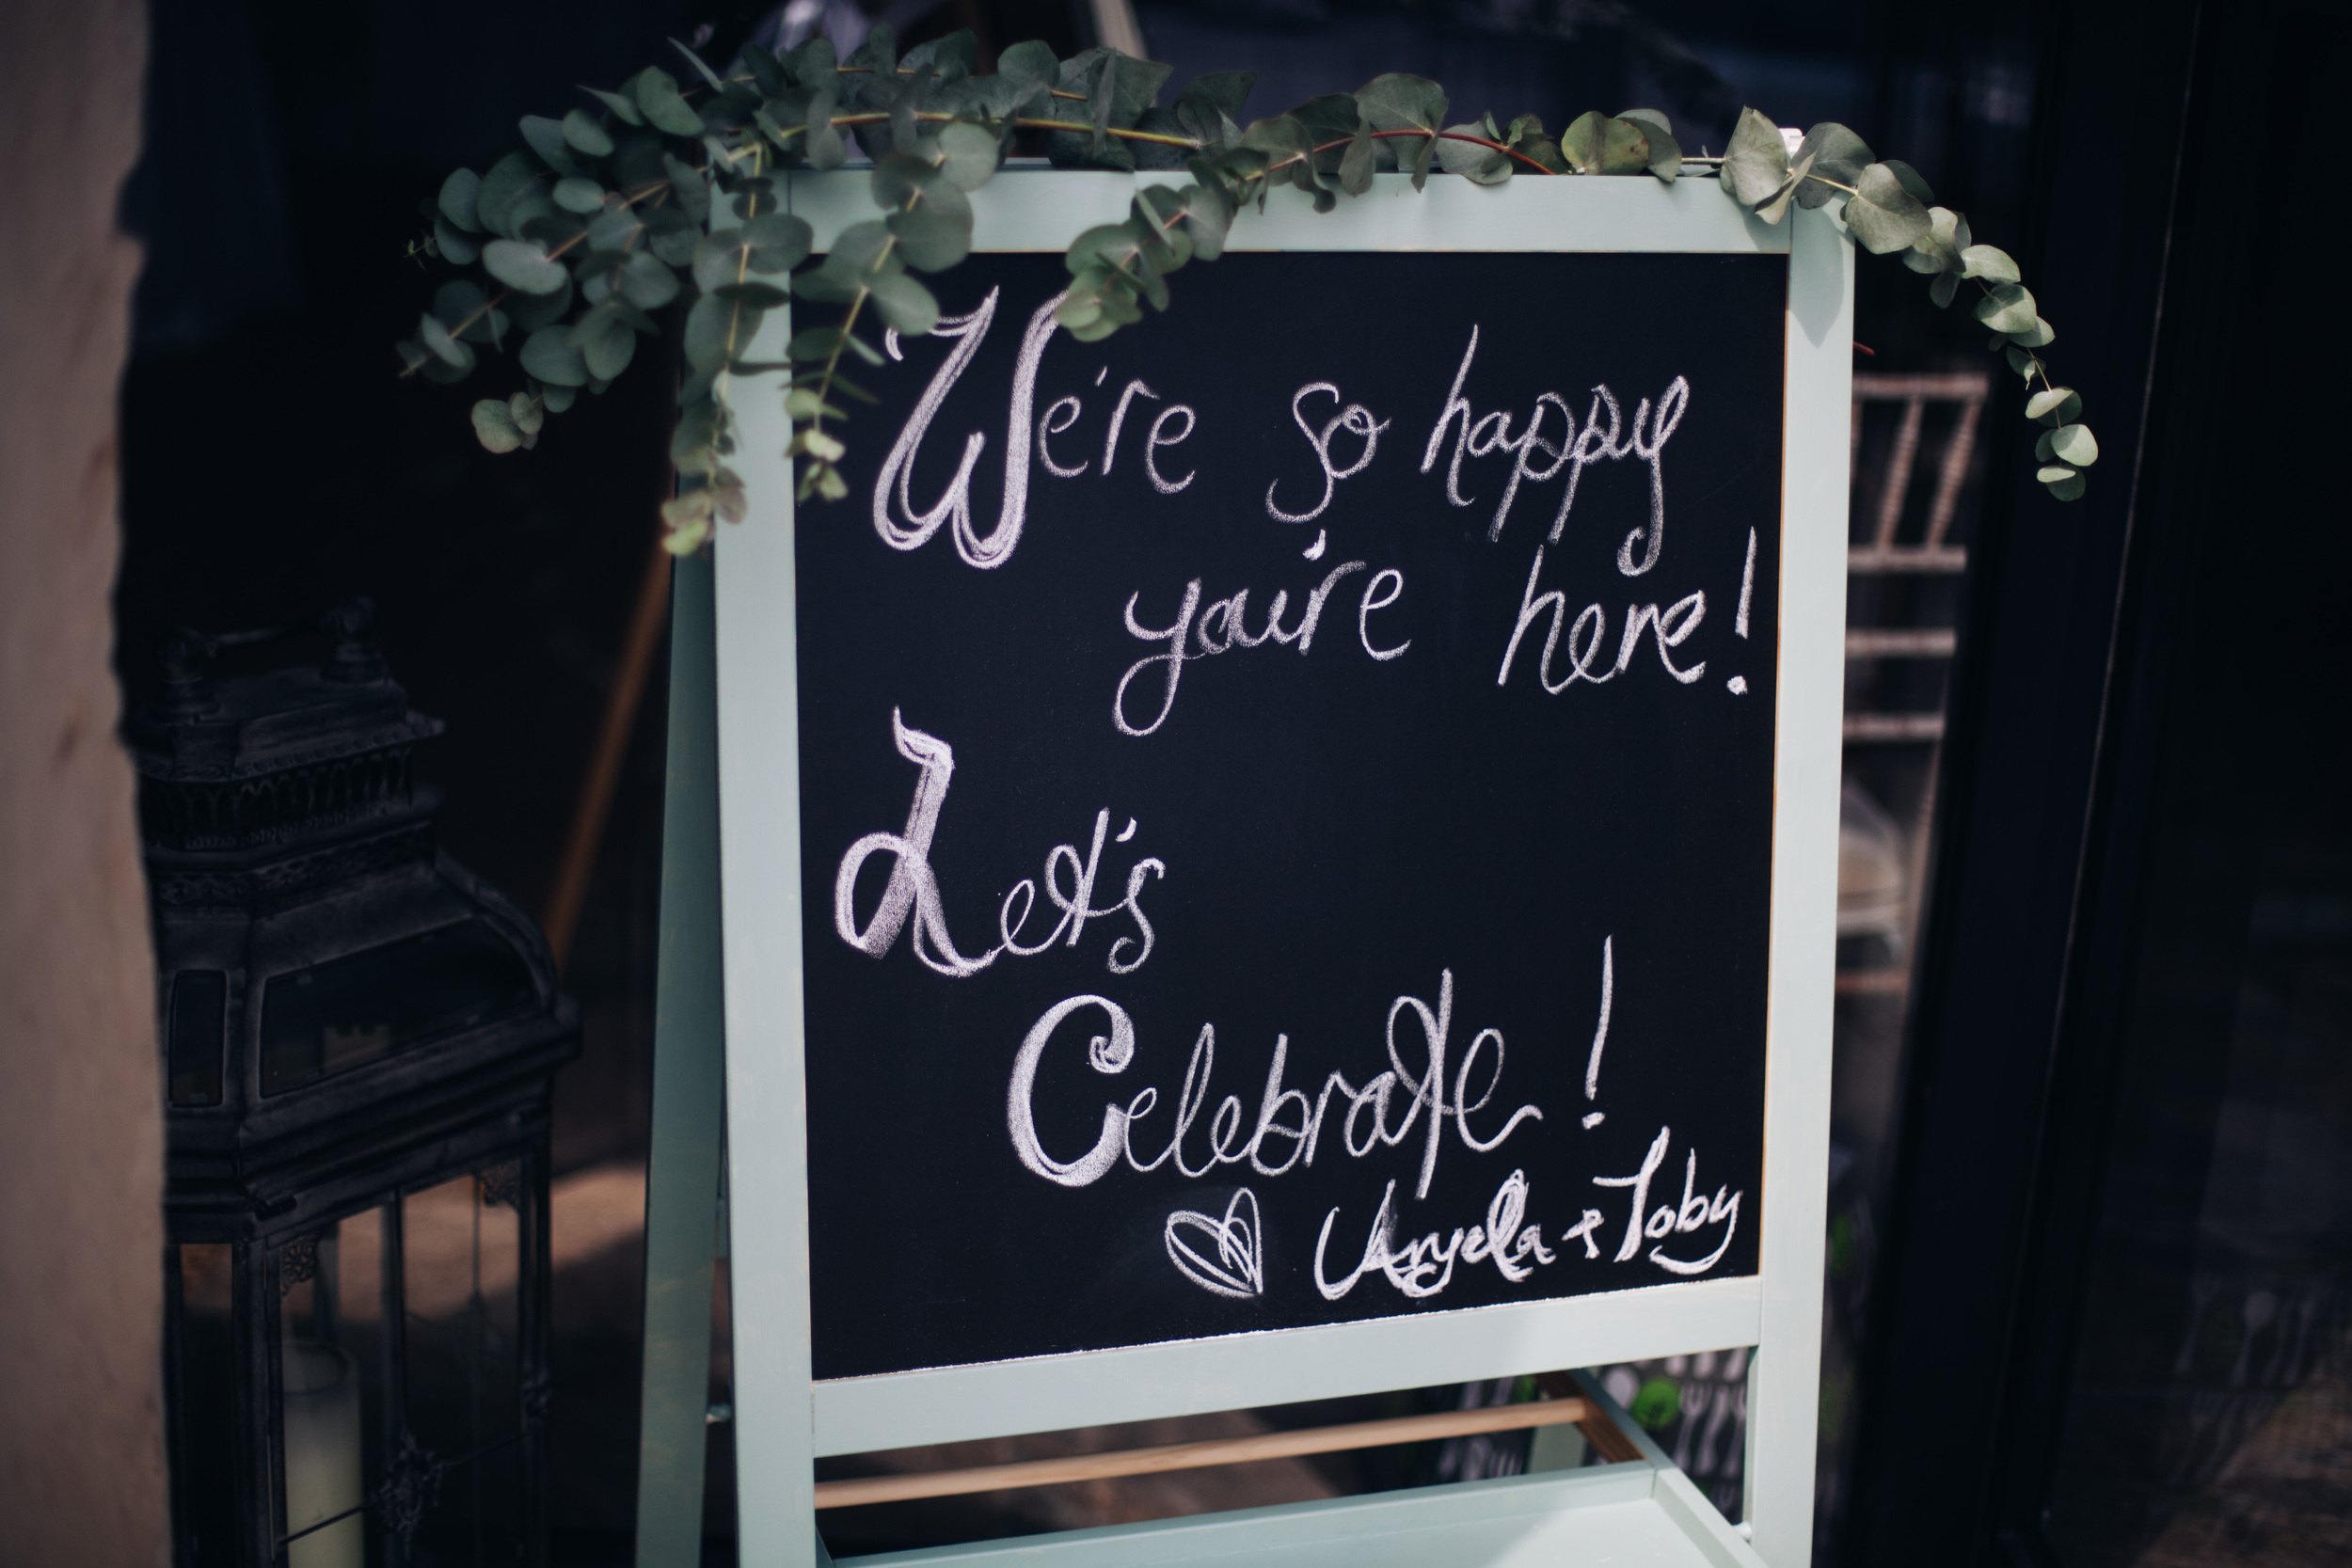 We're so happy
you're here!
Let's
Celebrate!
♡ Angela + Toby